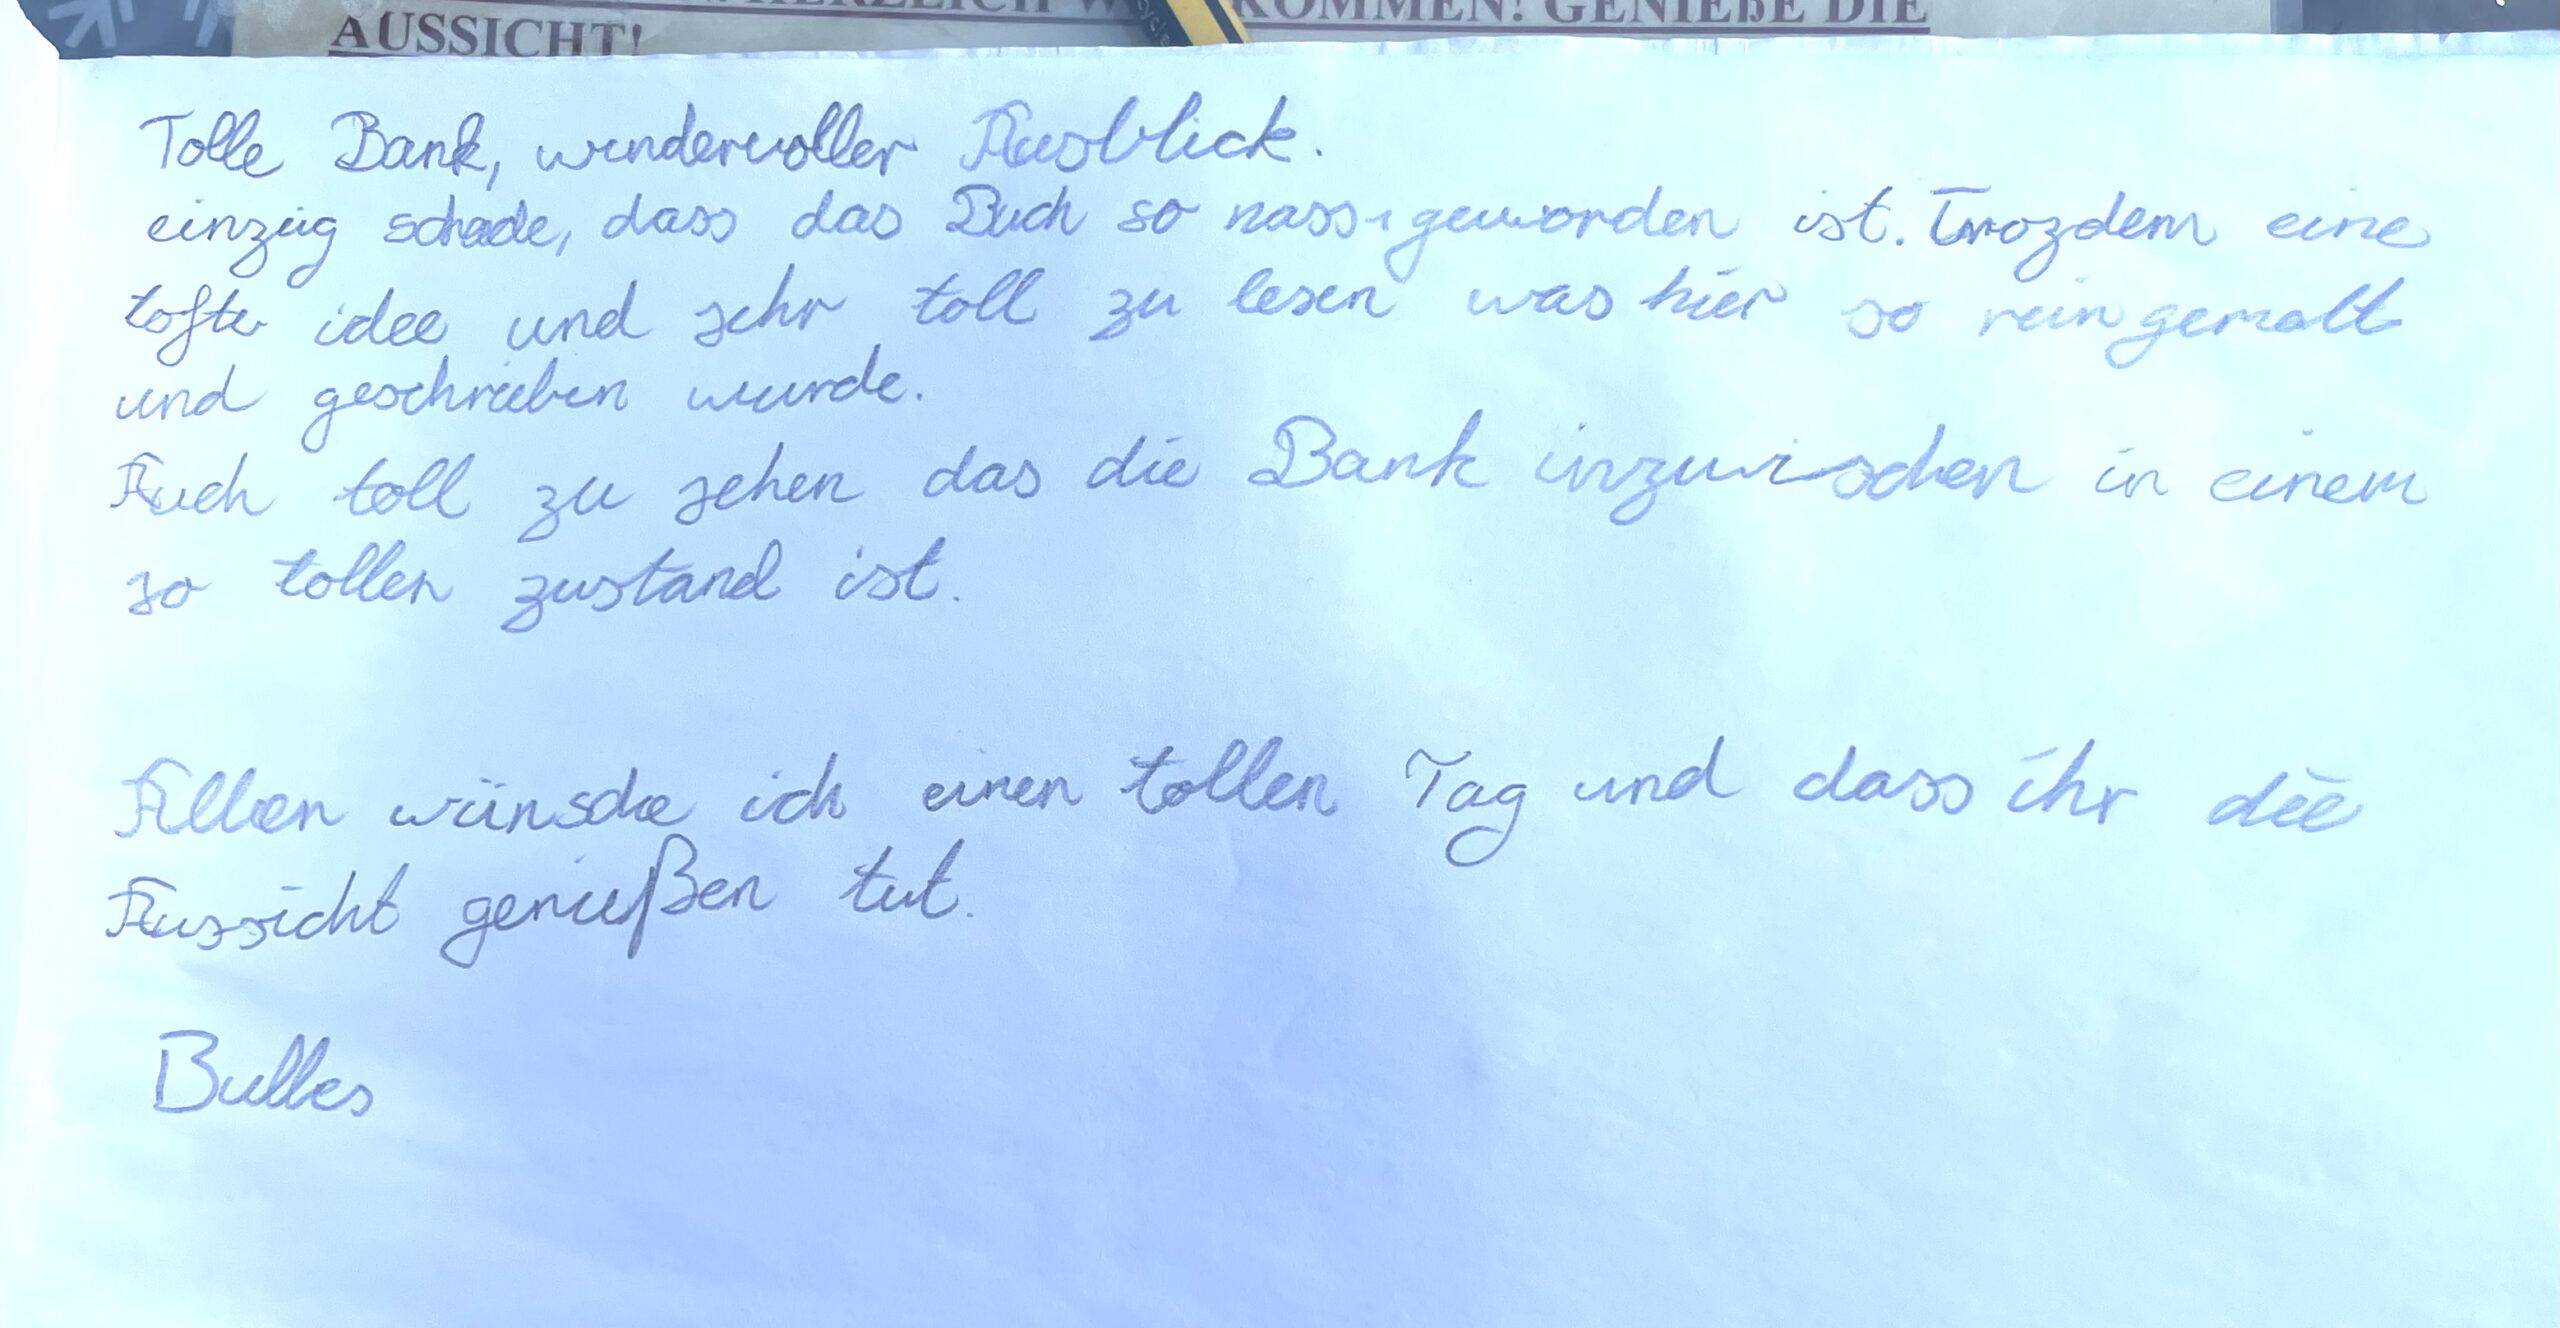 HERZLICH WILLKOMMEN! GENIEßE DIE
AUSSICHT!
Tolle Bank, wundervoller Ausblick.
einzig schade, dass das Buch so nass geworden ist. Trozdem eine
tofte idee und sehr toll zu lesen was hier so reingemalt
und geschrieben wurde.
Auch toll zu sehen das die Bank inzwischen in einem
so tollen zustand ist.
Allen wünsche ich einen tollen Tag und dass ihr die
Aussicht genießen tut.
Bulles